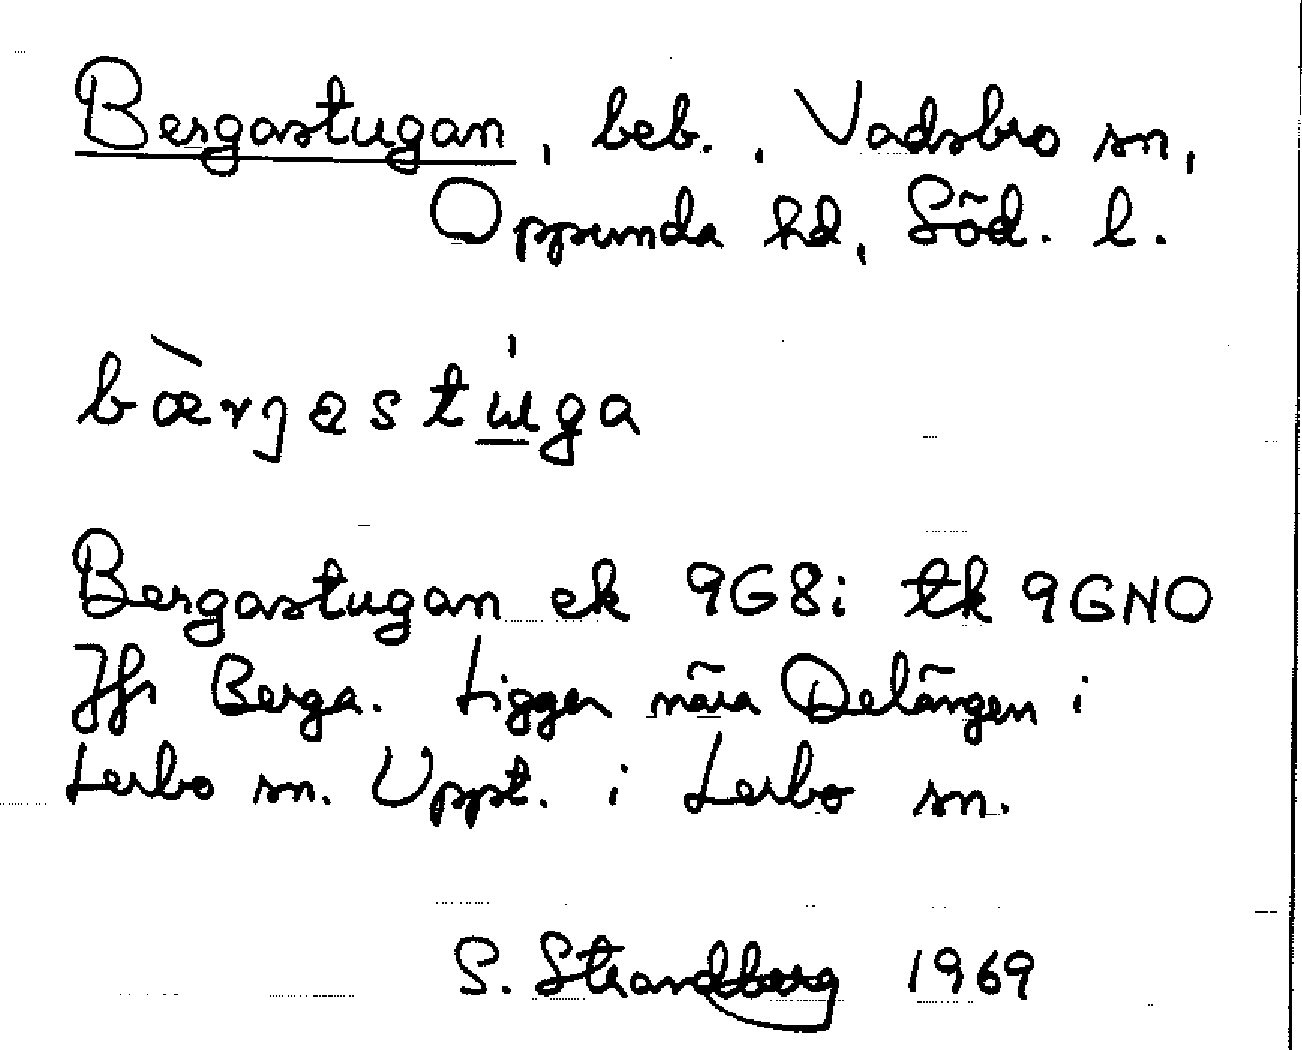 Bergastugan, beb., Vadsbro sn,
Oppunda hd, Söd. l.
bæ̀rjastú̲ga
Bergastugan ek 9G8i tk 9GNO
Jfr Berga. Ligger nära Delången i
Lerbo sn. Uppt. i Lerbo sn.
S. Strandberg 1969